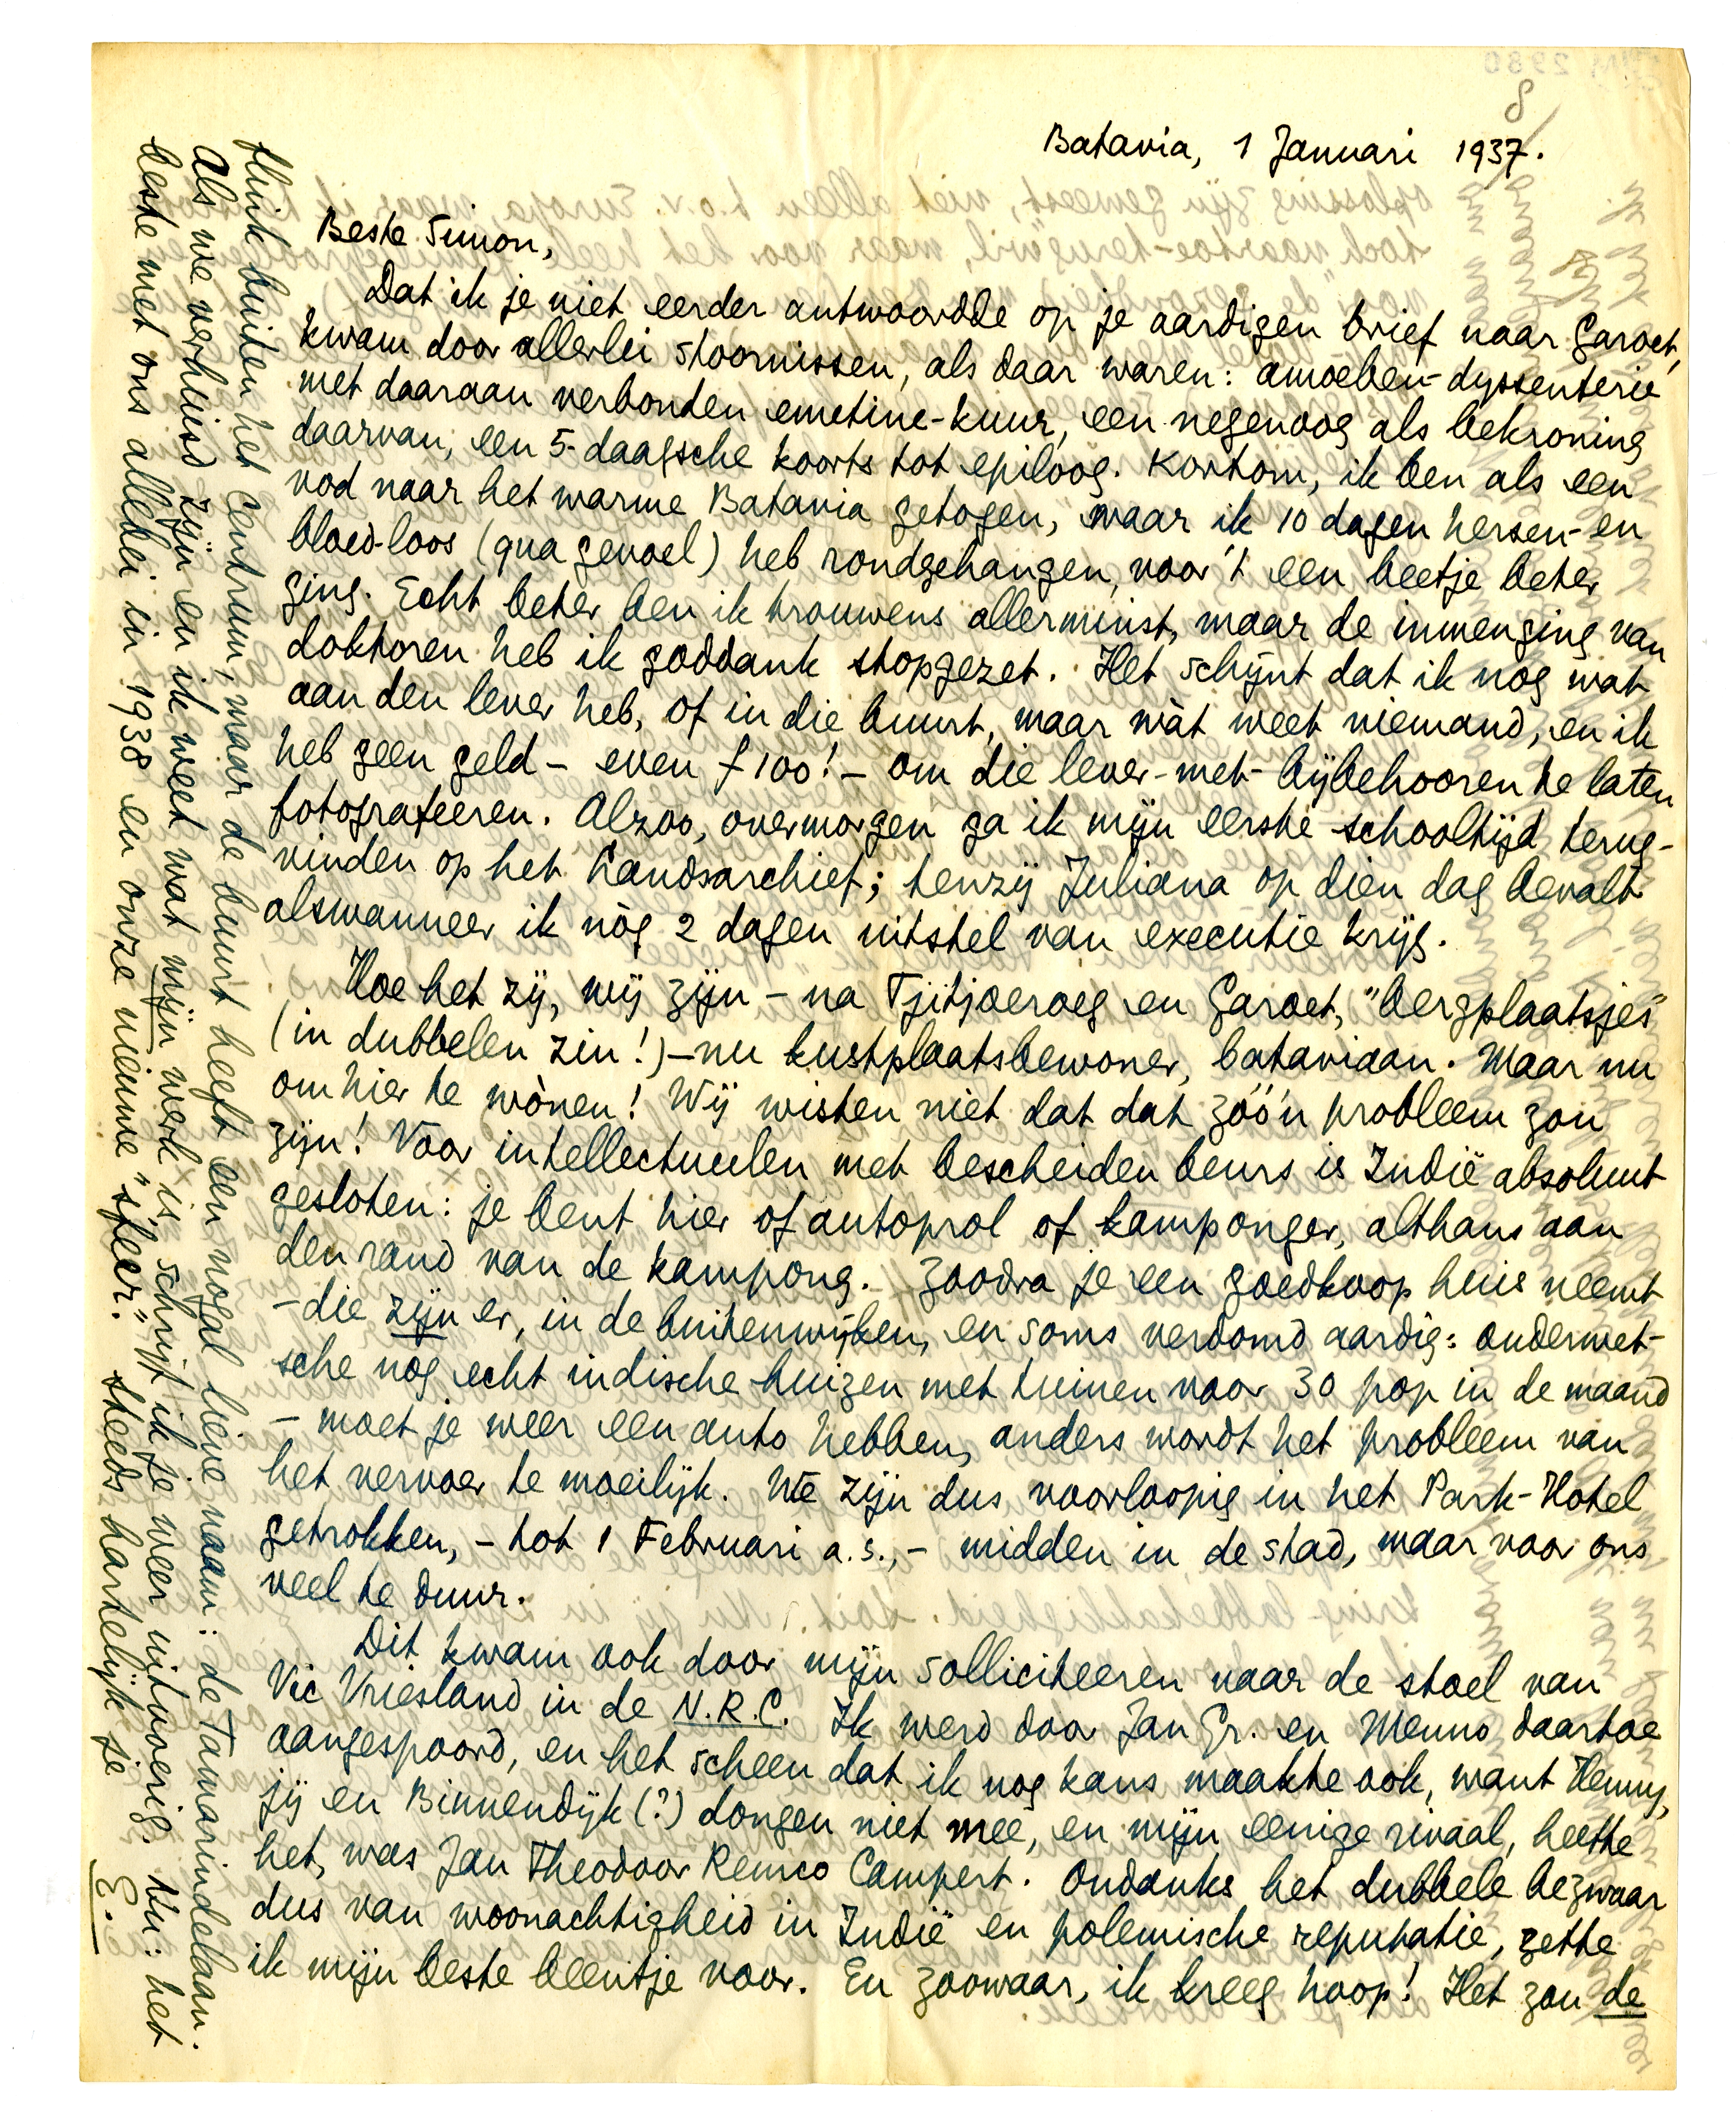 8
Batavia, 1 Januari 1937.
Beste Simon,
Dat ik je niet eerder antwoordde op je aardigen brief naar Garoet,
kwam door allerlei stoornissen, als daar waren: amoeben-dyssenterie
met daaraan verbonden emetine-kuur, een negenoog als bekroning
daarvan, een 5-daagsche koorts tot epiloog. Kortom, ik ben als een
vod naar het warme Batavia getogen, waar ik 10 dagen hersen- en
bloed-loos (qua gevoel) heb rondgehangen, voor 't een beetje beter
ging. Echt beter ben ik trouwens allerminst, maar de inmenging van
doktoren heb ik goddank stopgezet. Het schijnt dat ik nog wat
aan den lever heb, of in die buurt, maar wàt weet niemand, en ik
heb geen geld – even f 100! – om die lever-met-bijbehooren te laten
fotografeeren. Alzoo, overmorgen ga ik mijn eerste schooltijd terug-
vinden op het Landsarchief; tenzij Juliana op dien dag bevalt
alswanneer ik nòg 2 dagen uitstel van executie krijg.
Hoe het zij, wij zijn – na Tjitjoeroeg en Garoet, "bergplaatsjes"
(in dubbelen zin!) – nu kustplaatsbewoner, bataviaan. Maar nu
om hier te wònen! Wij wisten niet dat dat zóó'n probleem zou
zijn! Voor intellectueelen met bescheiden beurs is Indië absoluut
gesloten: je bent hier of autoprol of kamponger, althans aan
den rand van de kampong. Zoodra je een goedkoop huis neemt
– die zijn er, in de buitenwijken, en soms verdomd aardig: ouderwet-
sche nog echt indische huizen met tuinen voor 30 pop in de maand
– moet je weer een auto hebben, anders wordt het probleem van
het vervoer te moeilijk. We zijn dus voorloopig in het Park-Hotel
getrokken, – tot 1 Februari a.s., – midden in de stad, maar voor ons
veel te duur.
Dit kwam ook door mijn solliciteeren naar de stoel van
Vic Vriesland in de N.R.C. Ik werd door Jan Gr. en Menno daartoe
aangespoord, en het scheen dat ik nog kans maakte ook, want Henny,
jij en Binnendijk (?) dongen niet mee, en mijn eenige rivaal, heette
het, was Jan Theodoor Remco Campert. Ondanks het dubbele bezwaar
dus van woonachtigheid in Indië en polemische reputatie, zette
ik mijn beste beentje voor. En zoowaar, ik kreeg hoop! Het zou de
flink buiten het centrum, maar de buurt heeft een nogal lieve naam: de Tamarindelaan.
Als we verhuisd zijn en ik weet wat mijn werk is, schrijf ik je weer uitvoerig. Nu: het
beste met ons allebei in 1938 en onze nieuwe "sfeer". Steeds hartelijk je
E.